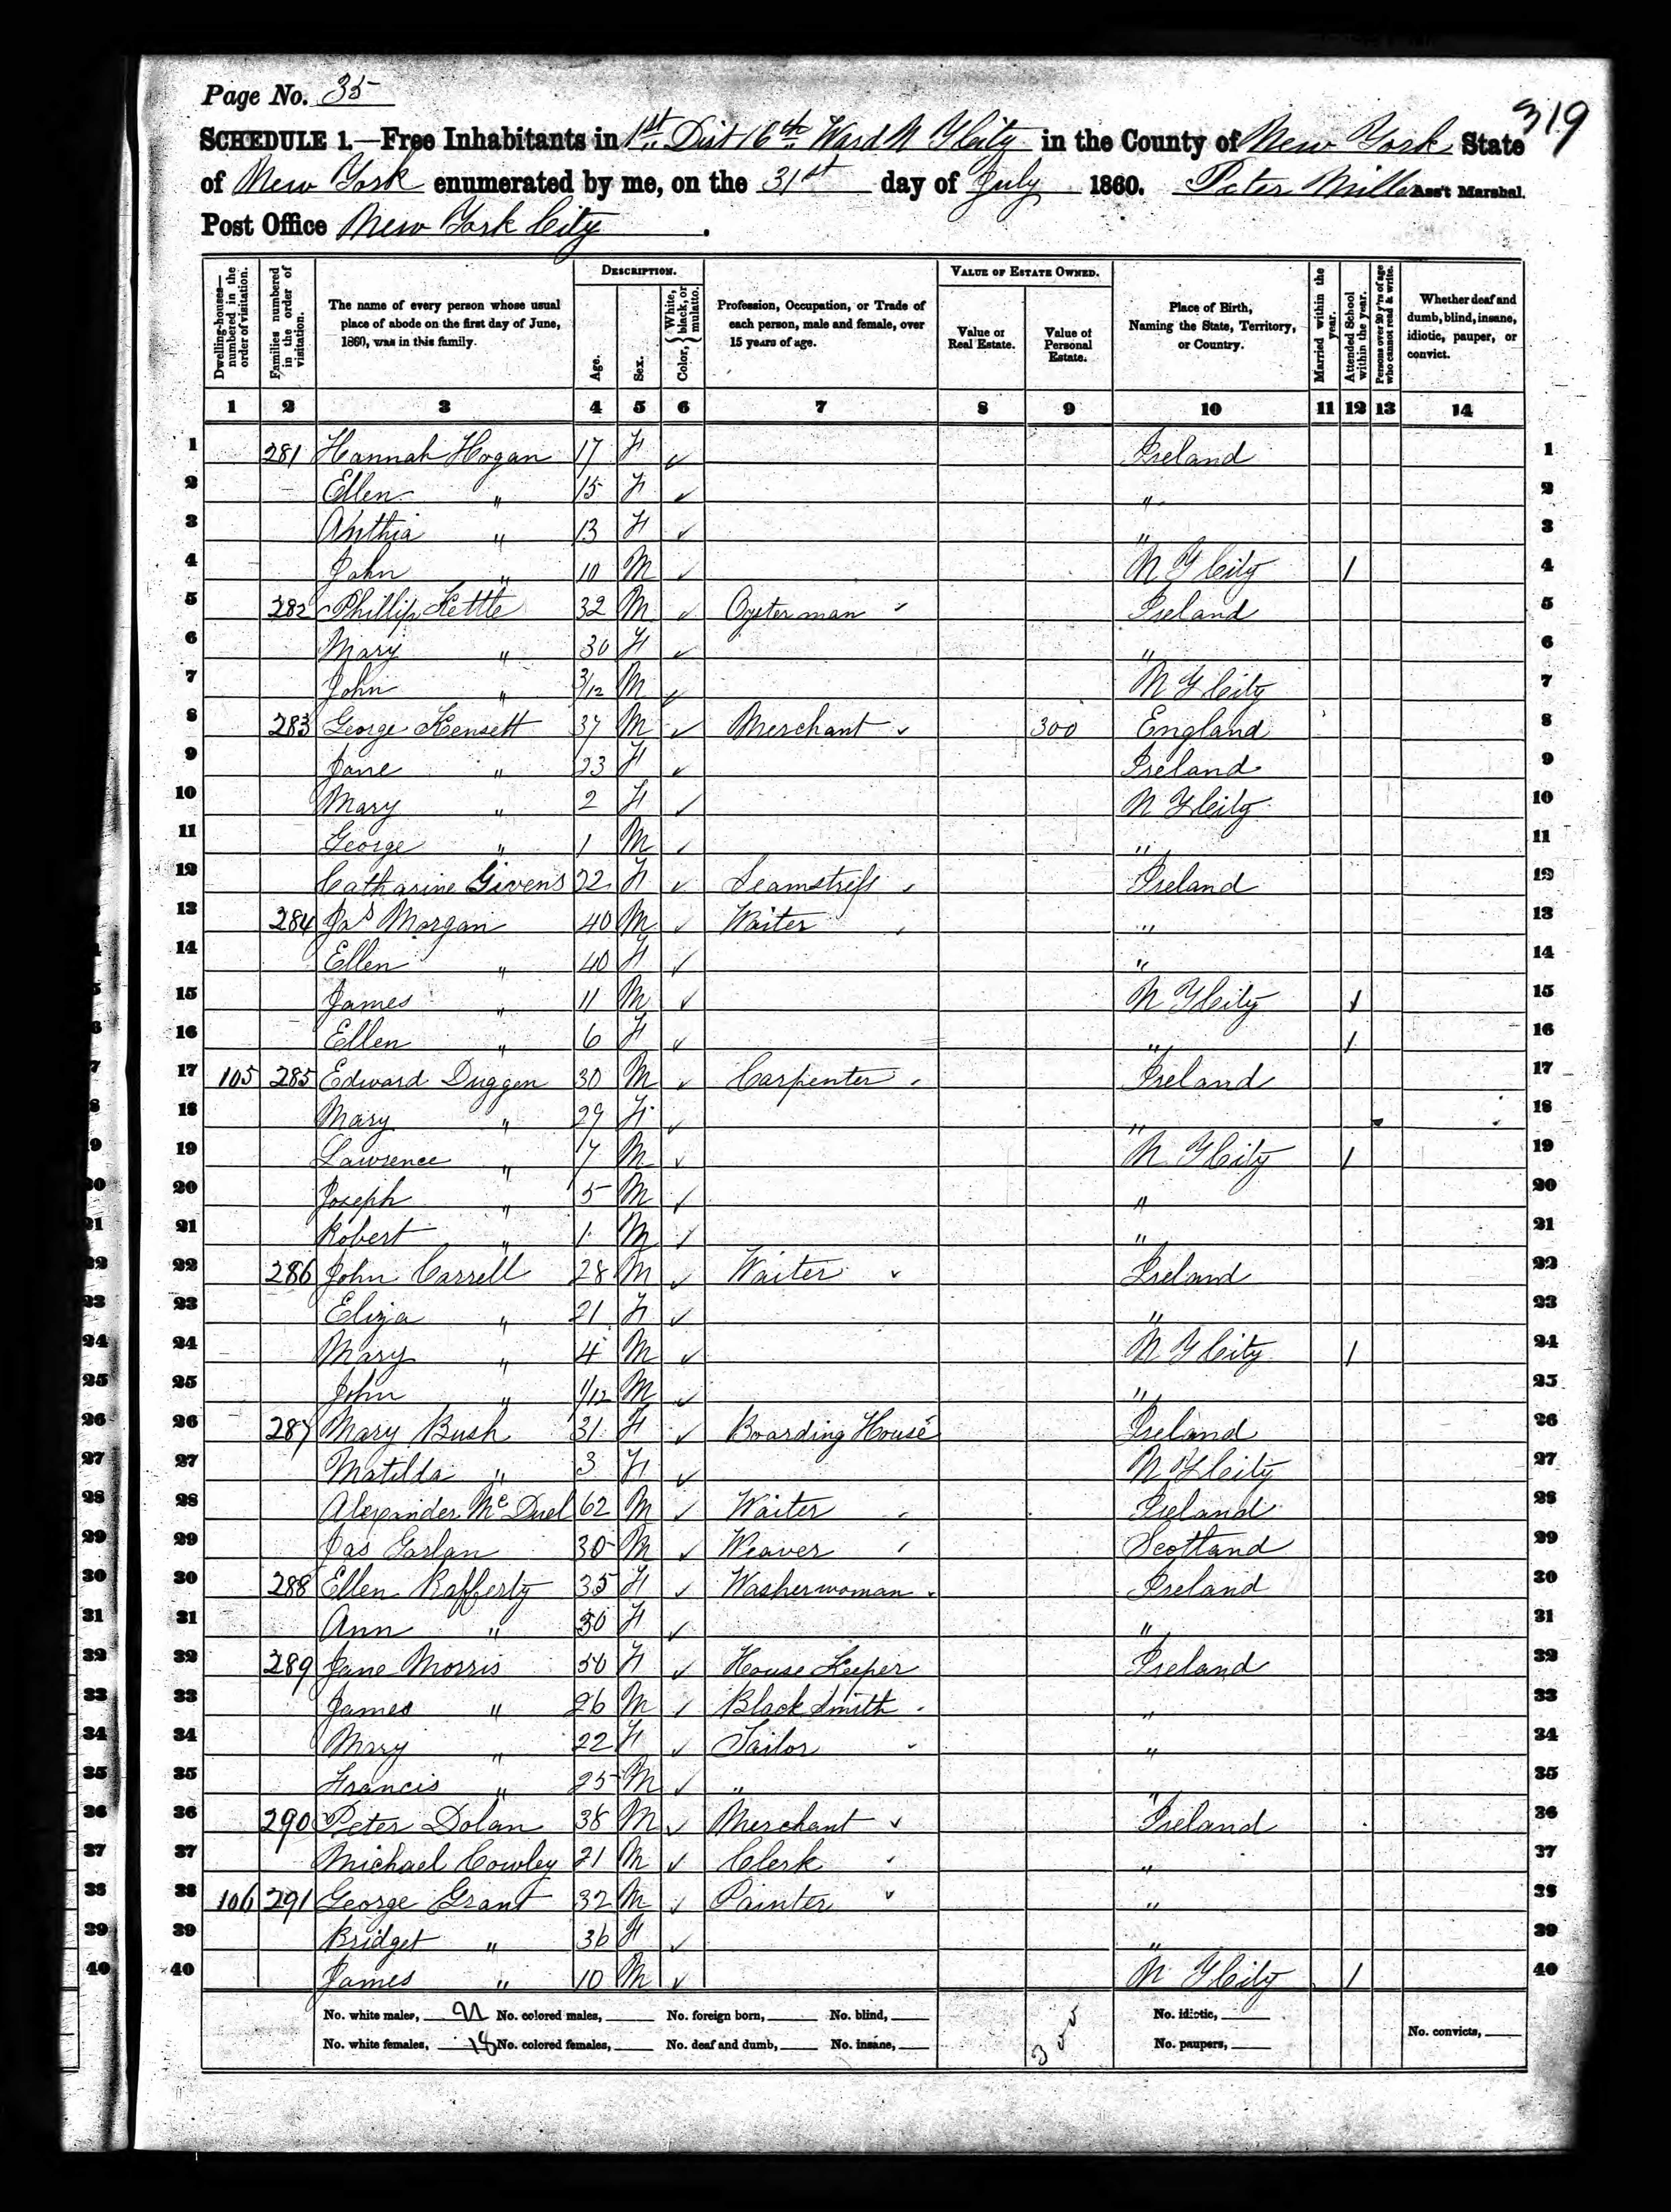 Page No. 35
319
SCHEDULE 1.—Free Inhabitants in 1st Dist 16th Ward N Y City in the County of New York State
of New York enumerated by me, on the 31st day of July 1860. Peter Miller Ass't Marshal.
Post Office New York City.
Dwelling-houses—numbered in the order of visitation. Families numbered in the order of visitation. The name of every person whose usual place of abode on the first day of June, 1860, was in this family. DESCRIPTION. Age. Sex. Color, {White, black, or mulatto. Profession, Occupation, or Trade of each person, male and female, over 15 years of age. VALUE OF ESTATE OWNED. Value of Real Estate. Value of Personal Estate. Place of Birth, Naming the State, Territory, or Country. Married within the year. Attended School within the year. Persons over 20 y'rs of age who cannot read & write. Whether deaf and dumb, blind, insane, idiotic, pauper, or convict.
1 2 3 4 5 6 7 8 9 10 11 12 13 14
1 281 Hannah Hogan 17 F ✓ Ireland 1
2 Ellen " 15 F ✓ " 2
3 " 13 F ✓ " 3
4 John " 10 M ✓ N Y City / 4
5 282 Phillip Kettle 32 M ✓ Oysterman ✓ Ireland 5
6 Mary " 30 F ✓ " 6
7 John " 3/12 M ✓ N Y City 7
8 283 George Kensett 37 M ✓ Merchant ✓ 300 England 8
9 Jane " 23 F ✓ Ireland 9
10 Mary " 2 F ✓ N Y City 10
11 George " 1 M ✓ " 11
12 Catharine Givens 22 F ✓ Seamstress Ireland 12
13 284 Jas Morgan 40 M ✓ Waiter " 13
14 Ellen " 40 F ✓ " 14
15 James " 11 M ✓ N Y City / 15
16 Ellen " 6 F ✓ " / 16
17 105 285 Edward Duggen 30 M ✓ Carpenter Ireland 17
18 Mary " 29 F ✓ " 18
19 Lawrence " 7 M ✓ N Y City / 19
20 Joseph " 5 M ✓ " 20
21 Robert " 1 M ✓ " 21
22 286 John Carrell 28 M ✓ Waiter ✓ Ireland 22
23 Eliza " 21 F ✓ " 23
24 Mary " 4 M ✓ N Y City / 24
25 John " 1/12 M ✓ " 25
26 287 Mary Bush 31 F ✓ Boarding House Ireland 26
27 Matilda " 3 F ✓ N Y City 27
28 Alexander Mc Duel 62 M ✓ Waiter Ireland 28
29 Jas Garlan 30 M ✓ Weaver Scotland 29
30 288 Ellen Rafferty 35 F ✓ Washerwoman Ireland 30
31 Ann " 30 F ✓ " 31
32 289 Jane Morris 50 F ✓ House Keeper Ireland 32
33 James " 26 M ✓ Black Smith " 33
34 Mary " 22 F ✓ Tailor ✓ " 34
35 Francis " 25 M ✓ " " 35
36 290 Peter Dolan 38 M ✓ Merchant ✓ Ireland 36
37 Michael Cowley 21 M ✓ Clerk ✓ " 37
38 106 291 George Grant 32 M ✓ Painter ✓ " 38
39 Bridget " 36 F ✓ " 39
40 James " 10 M ✓ N Y City / 40
No. white males, 22 No. colored males, No. foreign born, No. blind, 300 No. idiotic,
No. white females, 18 No. colored females, No. deaf and dumb, No. insane, No. paupers, No. convicts,